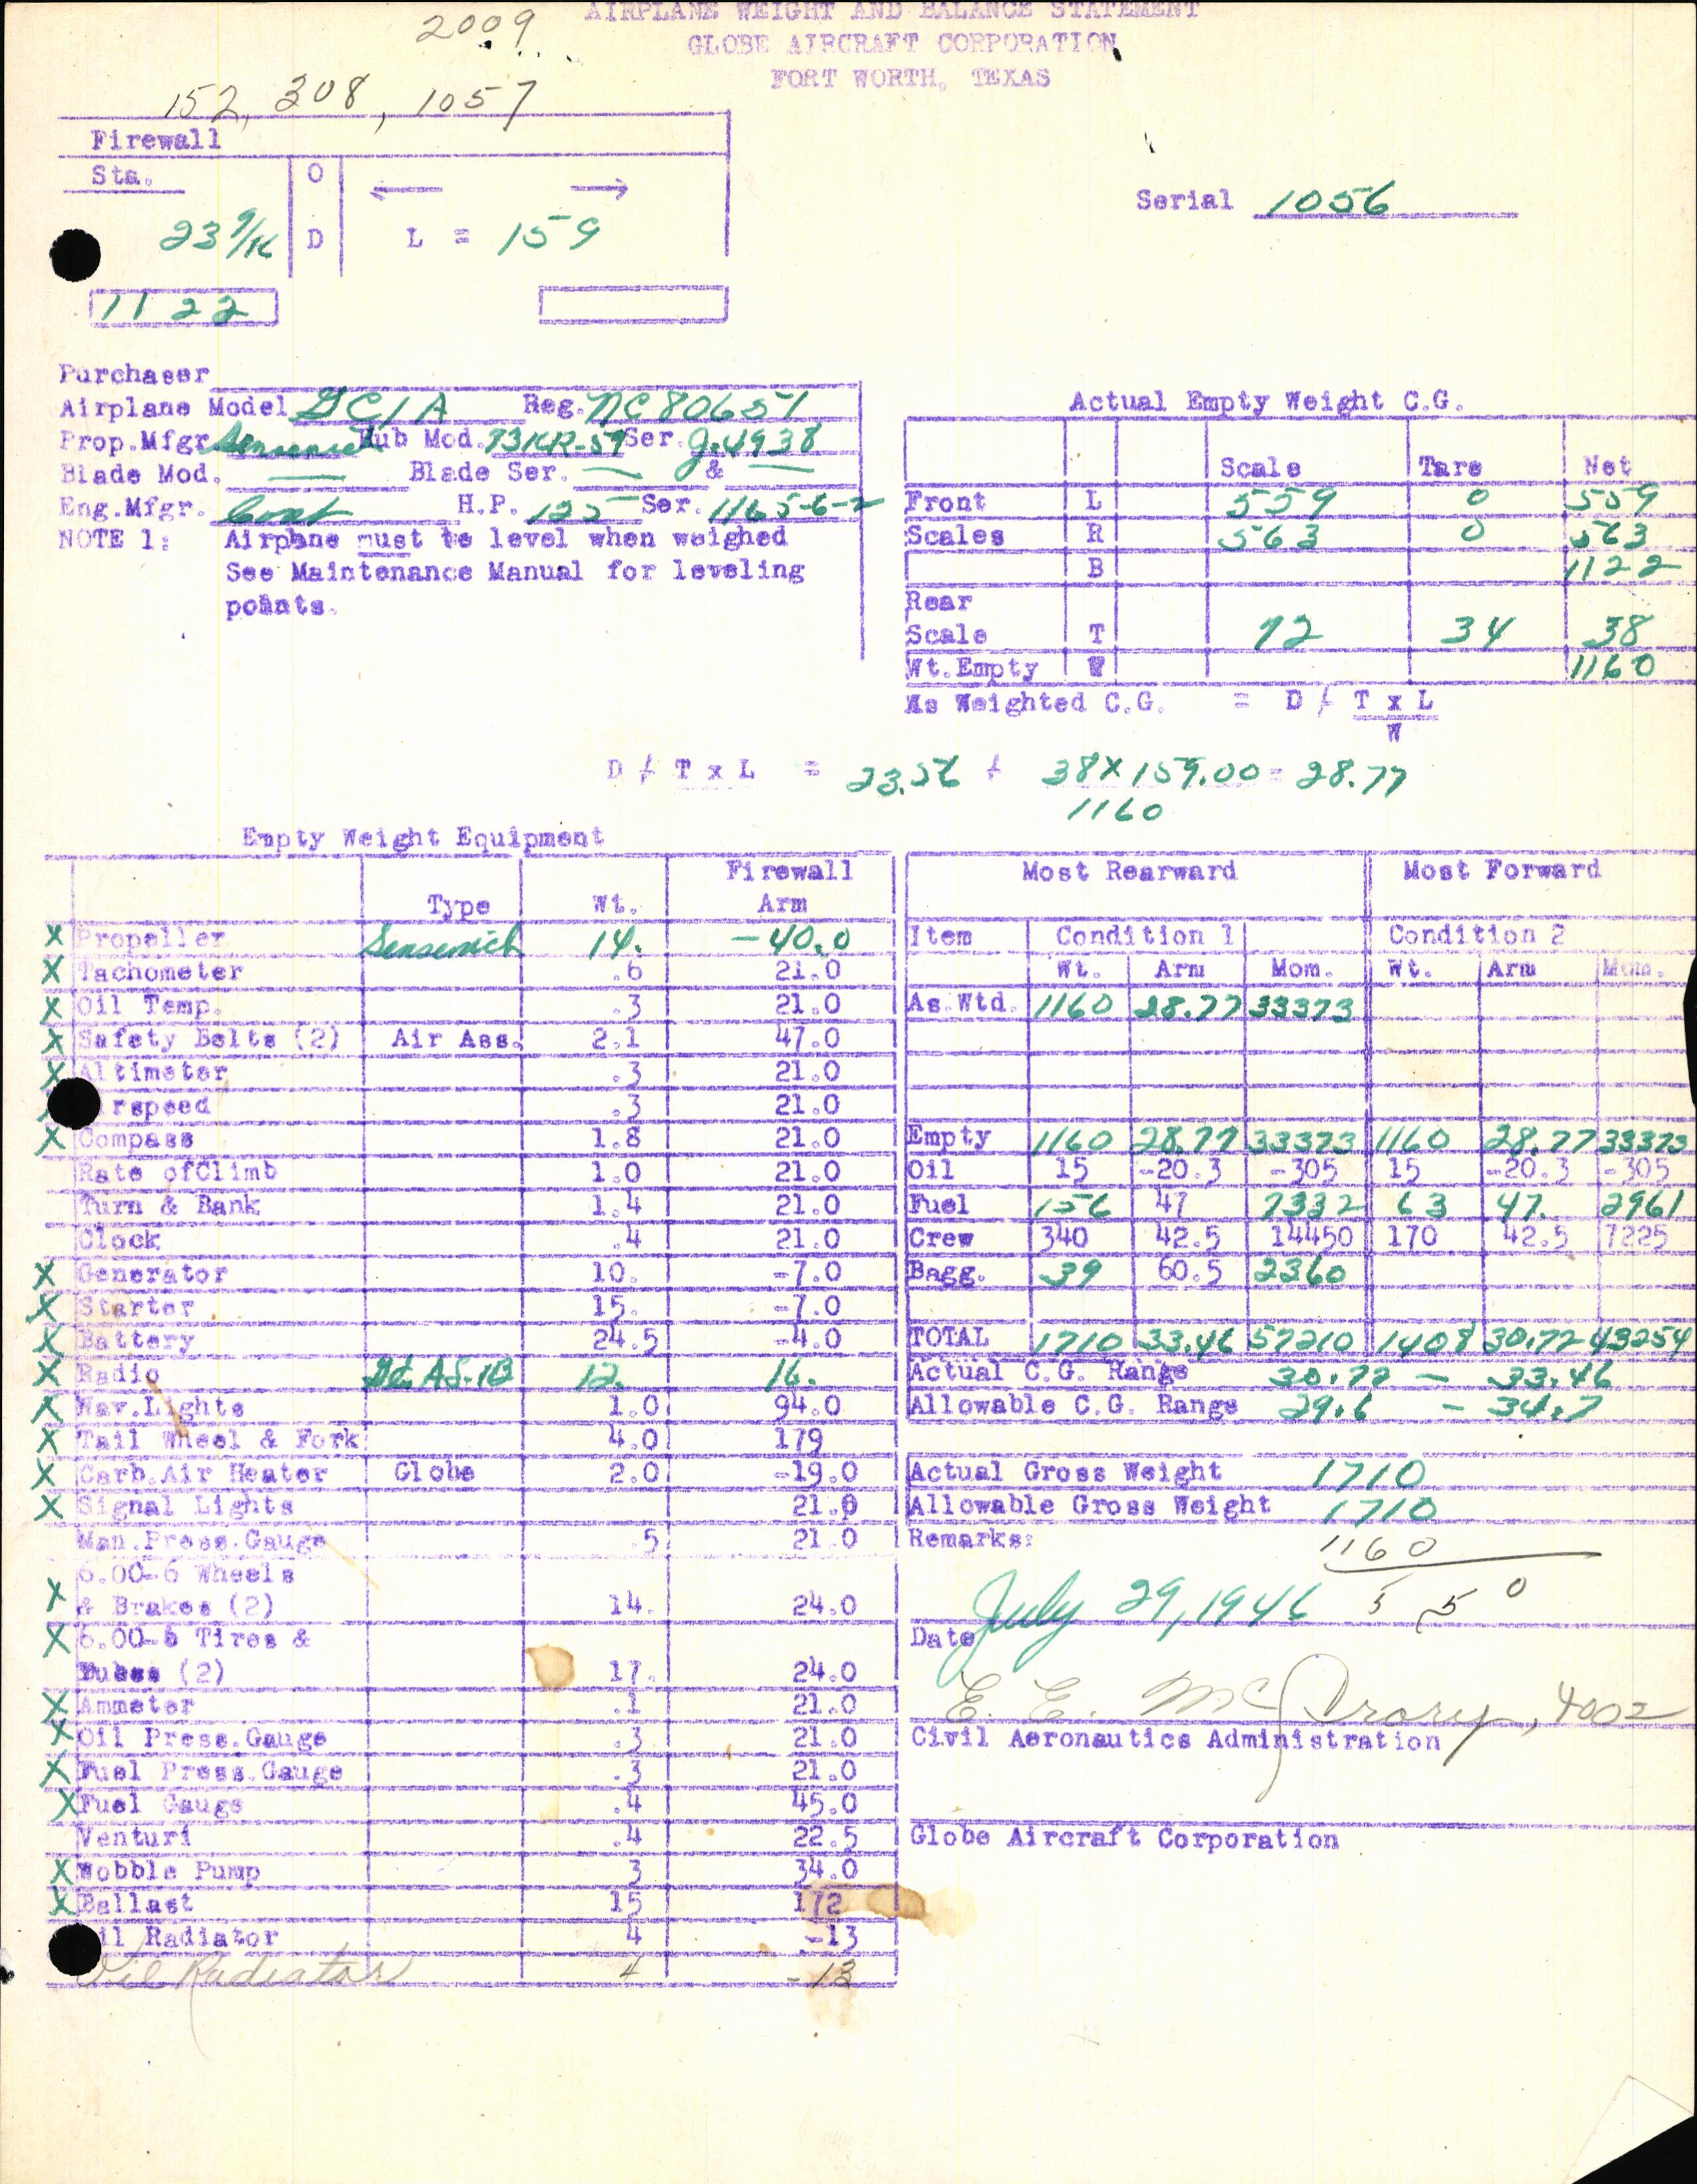 AIRPLANE WEIGHT AND BALANCE STATEMENT
2009
GLOBE AIRCRAFT CORPORATION
FORT WORTH, TEXAS
152, 308, 1057
Firewall
Sta. O ← →
Serial 1056
23 9/16 D L = 159
1122
Purchaser
Airplane Model GC1A Reg. NC80651
Prop.Mfgr Sensenich Hub Mod. 73KR-59 Ser. J.4938
Blade Mod. — Blade Ser. — & —
Eng.Mfgr. Cont H.P. 125 Ser. 1165-6-2
NOTE 1: Airplane must be level when weighed
See Maintenance Manual for leveling
points.
Actual Empty Weight C.G.
Scale Tare Net
Front L 559 0 559
Scales R 563 0 563
B 1122
Rear
Scale T 72 34 38
Wt.Empty W 1160
As Weighted C.G. = D / T x L
W
D / T x L = 23.56 / 38X159.00 = 28.77
1160
Empty Weight Equipment
Firewall
Type Wt. Arm
X Propeller Sensenich 14. -40.0
X Tachometer .6 21.0
X Oil Temp. .3 21.0
X Safety Belts (2) Air Ass. 2.1 47.0
X Altimeter .3 21.0
irspeed .3 21.0
X Compass 1.8 21.0
Rate ofClimb 1.0 21.0
Turn & Bank 1.4 21.0
Clock .4 21.0
X Generator 10. -7.0
X Starter 15. -7.0
X Battery 24.5 -4.0
X Radio GE AS-1B 12. 16.
X Nav.Lights 1.0 94.0
X Tail Wheel & Fork 4.0 179
X Carb.Air Heater Globe 2.0 -19.0
X Signal Lights 21.0
Man.Press.Gauge .5 21.0
6.00-6 Wheels
X & Brakes (2) 14. 24.0
X 6.00-6 Tires &
Tubes (2) 17. 24.0
X Ammeter .1 21.0
X Oil Press.Gauge .3 21.0
X Fuel Press.Gauge .3 21.0
X Fuel Gauge .4 45.0
Venturi .4 22.5
X Wobble Pump 3 34.0
X Ballast 15 172
il Radiator 4 -13
Oil Radiator 4 -13
Most Rearward Most Forward
Item Condition 1 Condition 2
Wt. Arm Mom. Wt. Arm Mom.
As.Wtd. 1160 28.77 33373
Empty 1160 28.77 33373 1160 28.77 33373
Oil 15 -20.3 -305 15 -20.3 -305
Fuel 156 47 7332 63 47. 2961
Crew 340 42.5 14450 170 42.5 7225
Bagg. 39 60.5 2360
TOTAL 1710 33.46 57210 1408 30.72 43254
Actual C.G. Range 30.72 - 33.46
Allowable C.G. Range 29.6 - 34.7
Actual Gross Weight 1710
Allowable Gross Weight 1710
Remarks: 1160
550
July 29, 1946
Date
E. E. 4002
Civil Aeronautics Administration
Globe Aircraft Corporation